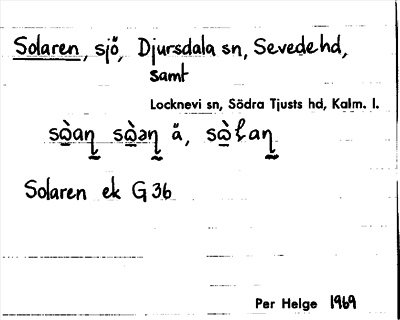 Solaren, sjö, Djursdala sn, Sevede hd,
samt
Locknevi sn, Södra Tjusts hd, Kalm. l.
Solaren ek G 36
Per Helge 1969